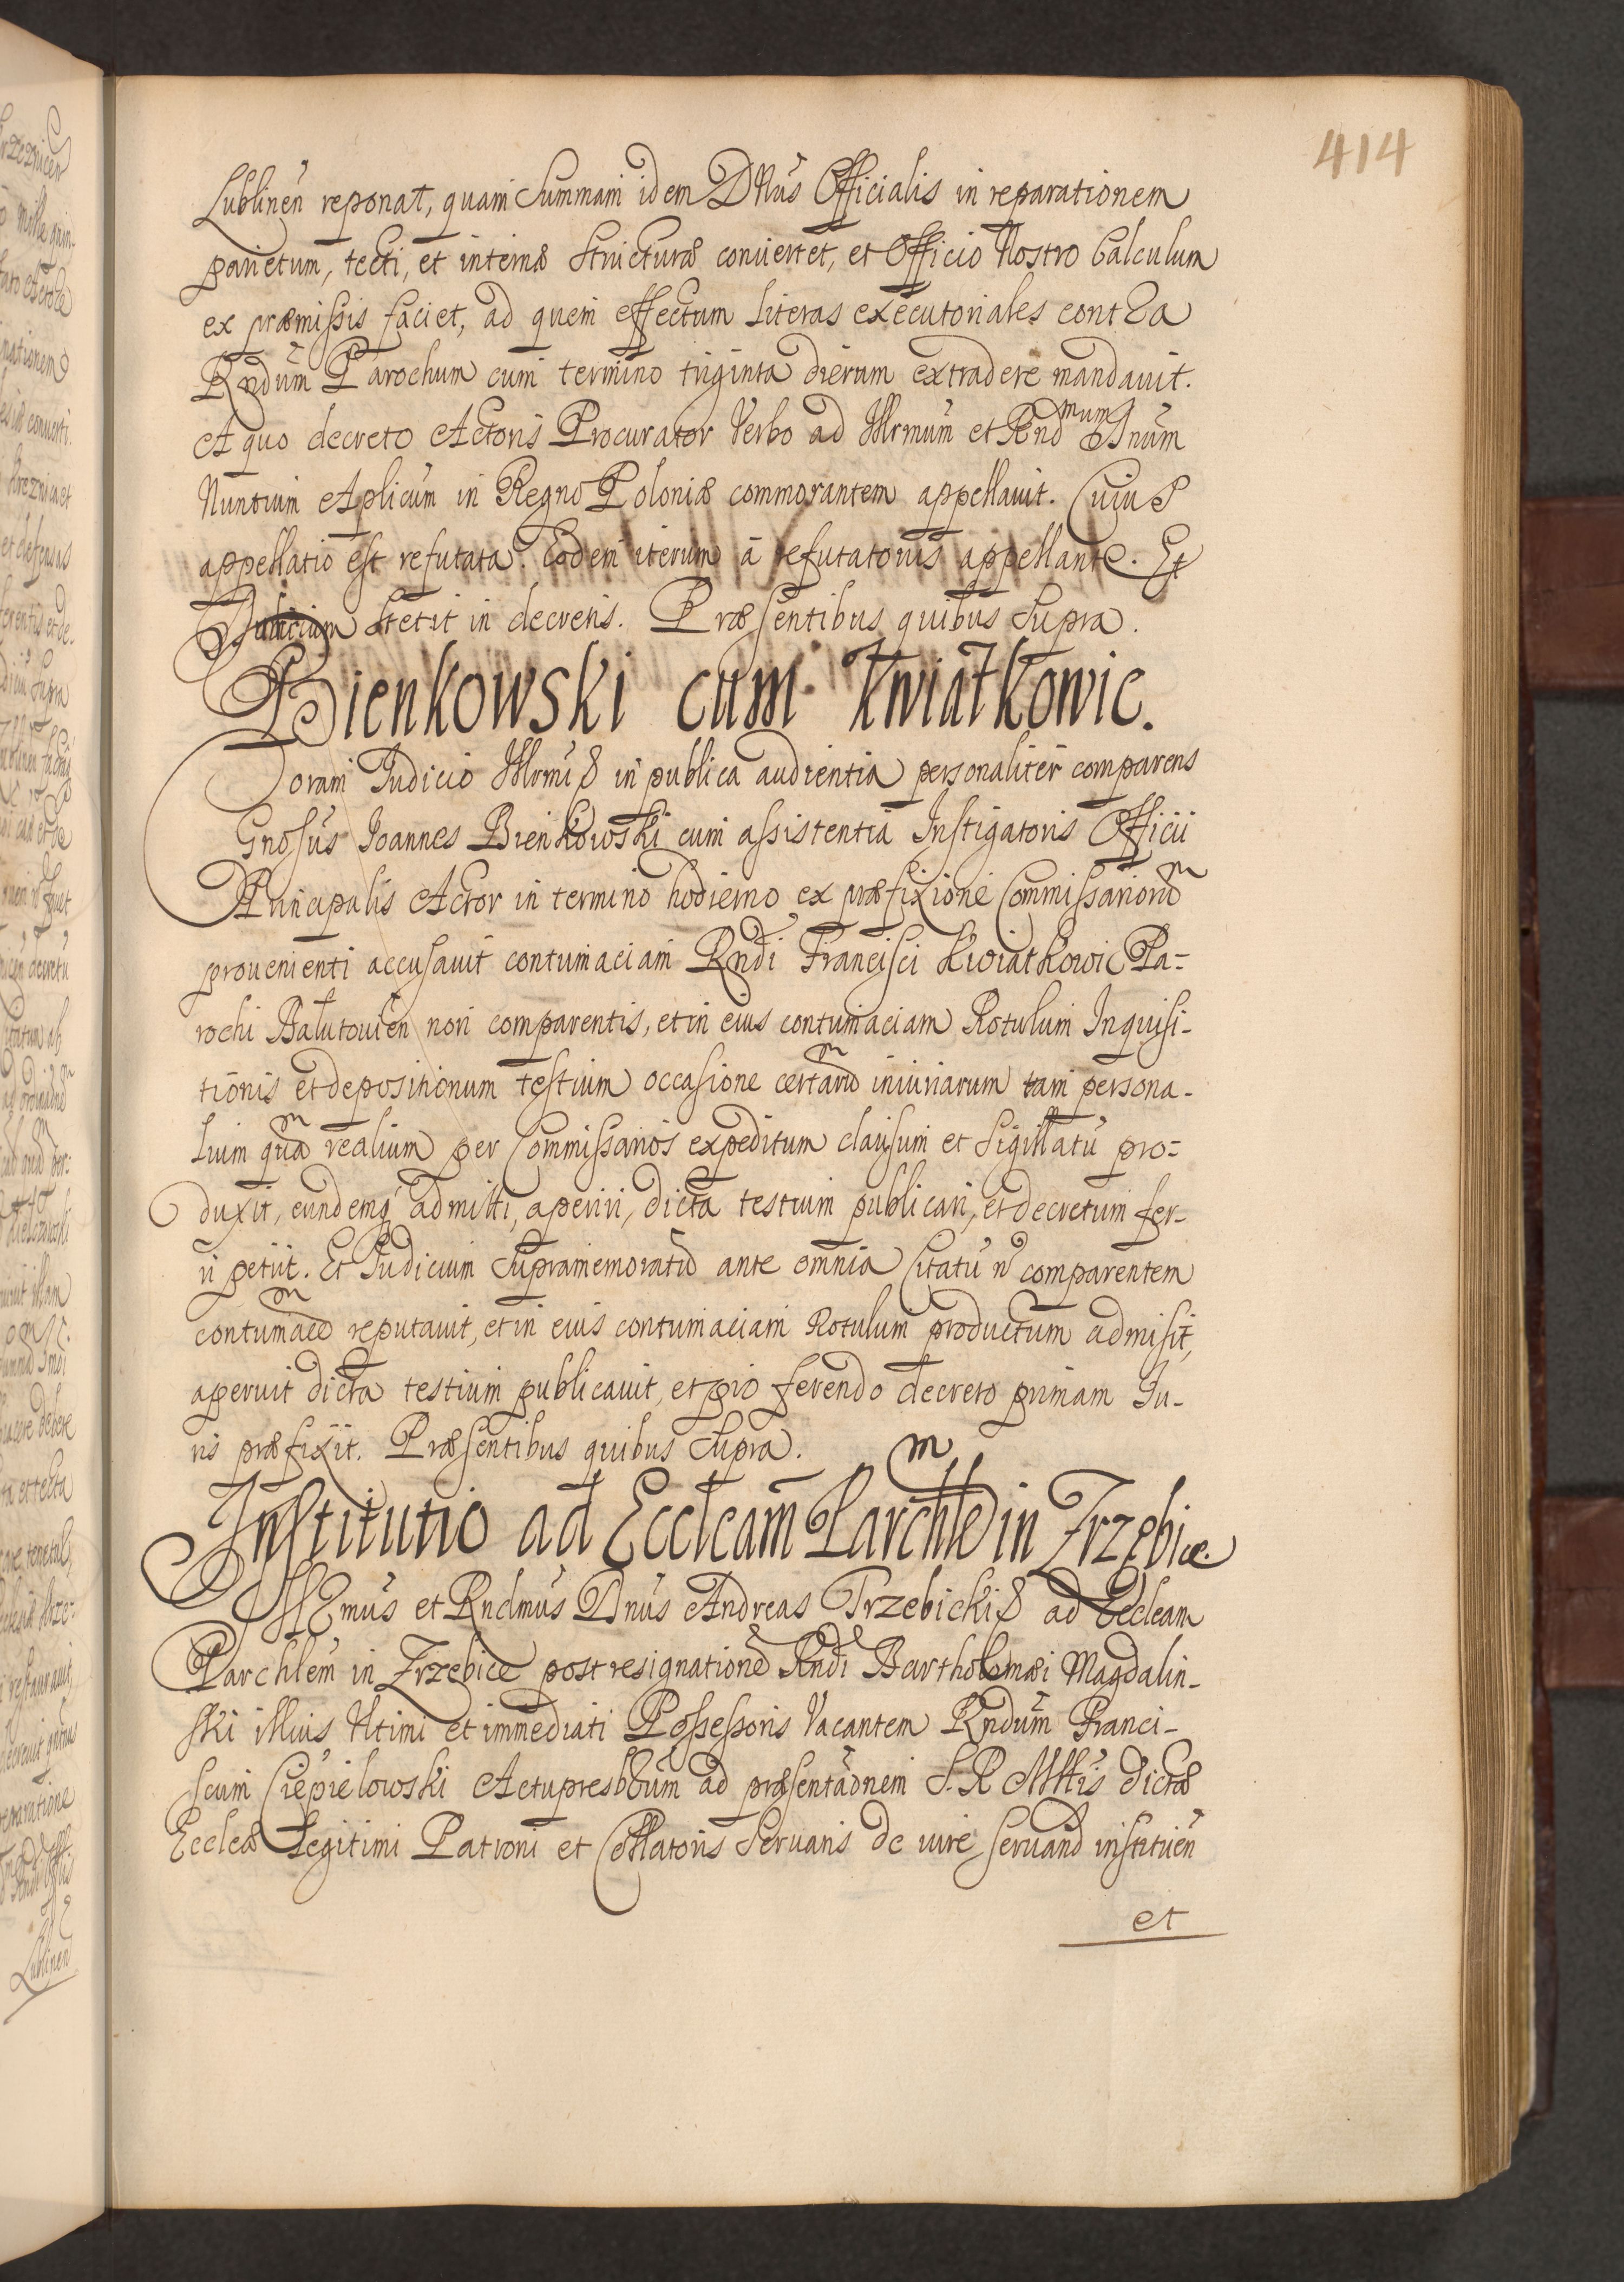 414
Lublinen reponat, quam Summam idem DNus Officialis in reparationem
parietum, tecti, et internæ Structuræ conuertet, et Officio Nostro Calculum
ex præmissis faciet, ad quem effectum Literas executoriales contra
Rndum Parochum cum termino triginta dierum extradere mandauit.
A quo decreto Actoris Procurator Verbo ad Illrmum et Rndmum Dnum
Nuntium Aplicum in Regno Poloniæ commorantem appellauit. Cuius
appellatio est refutata. Eodem iterum à refutatoriis appellante. Et
Judicium stetit in decretis. Præsentibus quibus Supra.
Bienkowski cum Kwiatkowic.
Coram Judicio Illrmi &c in publica audientia personaliter comparens
Gnosus Joannes Bienkowski cum assistentia Instigatoris Officii
Principalis Actor in termino hodierno ex præfixione Commissariorum
prouenienti accusauit contumaciam Rndi Francisci Kwiatkowic Pa=
rochi Bałutouien non comparentis, et in eius contumaciam Rotulum Inquisi-
tionis et depositionum testium occasione certarum iniuriarum tam persona-
lium quam realium per Commissarios expeditum clausum et Sigillatu pro=
duxit, eundemq admitti, aperiri, dicta testium publicari, et decretum fer-
ri petiit. Et Judicium Supramemoratum ante omnia Citatu n comparentem
contumacem reputauit, et in eius contumaciam Rotulum productum admisit,
aperuit dicta testium publicauit, et pro ferendo decreto primam Ju-
ris præfixit. Præsentibus quibus Supra.
Institutio ad Eccleam Parchlem in Trzebice.
Illrmus et Rndmus Dnus Andreas Trzebicki &c ad Eccleam
Parchlem in Trzebice post resignatione Rndi Bartholomæi Magdalin-
ski illius Vltimi et immediati Possessoris Vacantem Rndum Franci-
scum Ciepielowski Actupresbrum ad præsentaonem S. R. Mttis dictæ
Eccleæ Legitimi Patroni et Collatoris Seruatis de iure seruand instituen
et